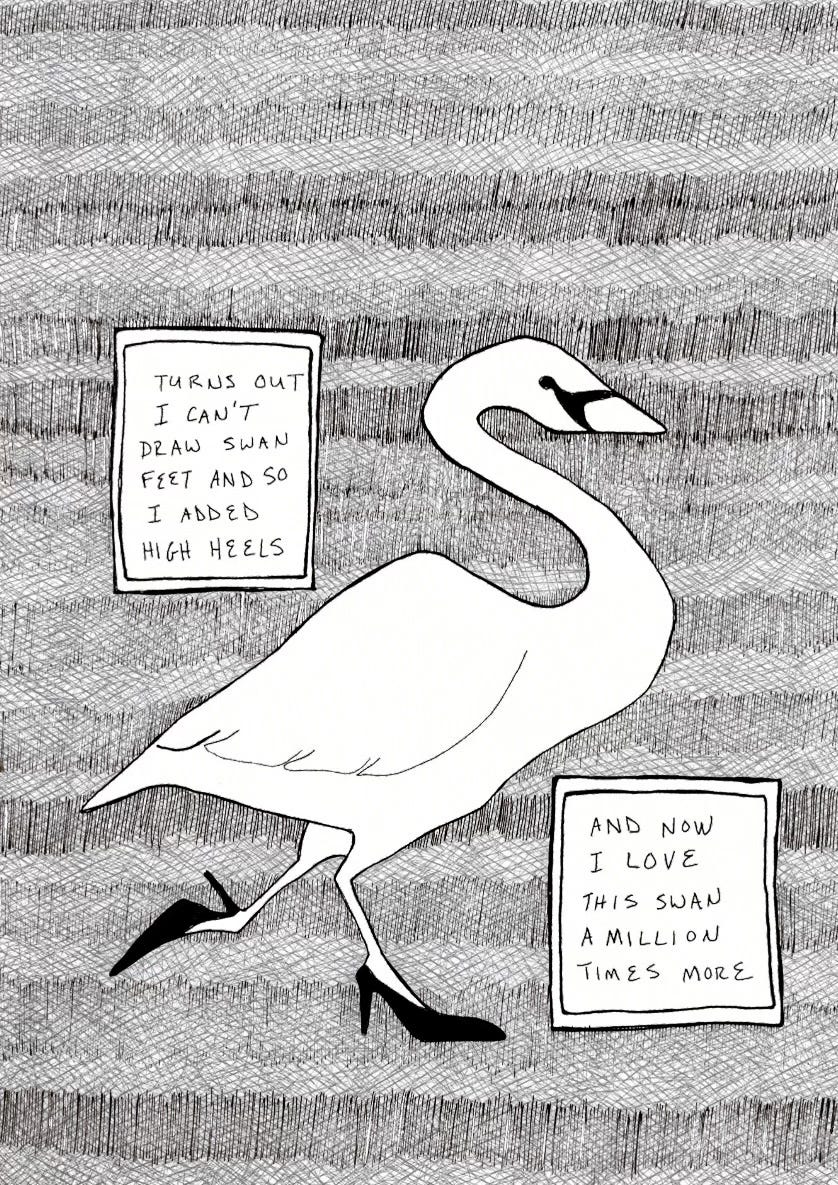 TURNS OUT
I CAN'T
DRAW SWAN
FEET AND SO
I ADDED
HIGH HEELS
AND NOW
I LOVE
THIS SWAN
A MILLION
TIMES MORE